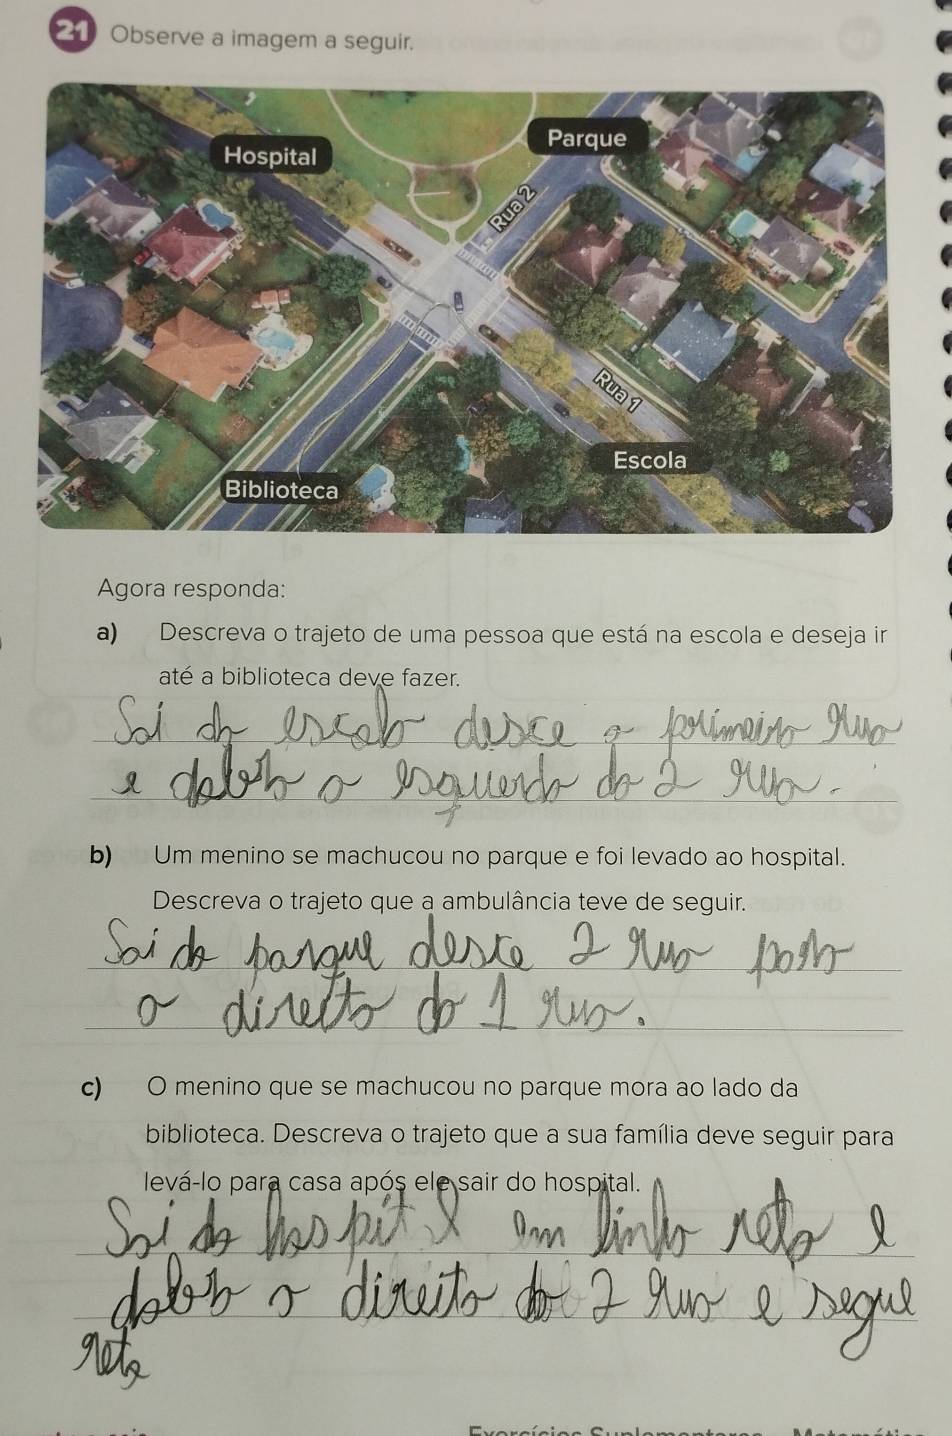 21 Observe a imagem a seguir.
Hospital
Parque
Rua 2
Rua 1
Escola
Biblioteca
Agora responda:
a) Descreva o trajeto de uma pessoa que está na escola e deseja ir
até a biblioteca deve fazer.
Sai da escola desce a primeira rua
e dobra a esquerda da 2 rua.
b) Um menino se machucou no parque e foi levado ao hospital.
Descreva o trajeto que a ambulância teve de seguir.
Sai do parque desce 2 rua
a direita do 1 rua.
c) O menino que se machucou no parque mora ao lado da
biblioteca. Descreva o trajeto que a sua família deve seguir para
levá-lo para casa após ele sair do hospital.
Sai do hospital em linha reta e
dobra a direita da 2 rua e segue
reto